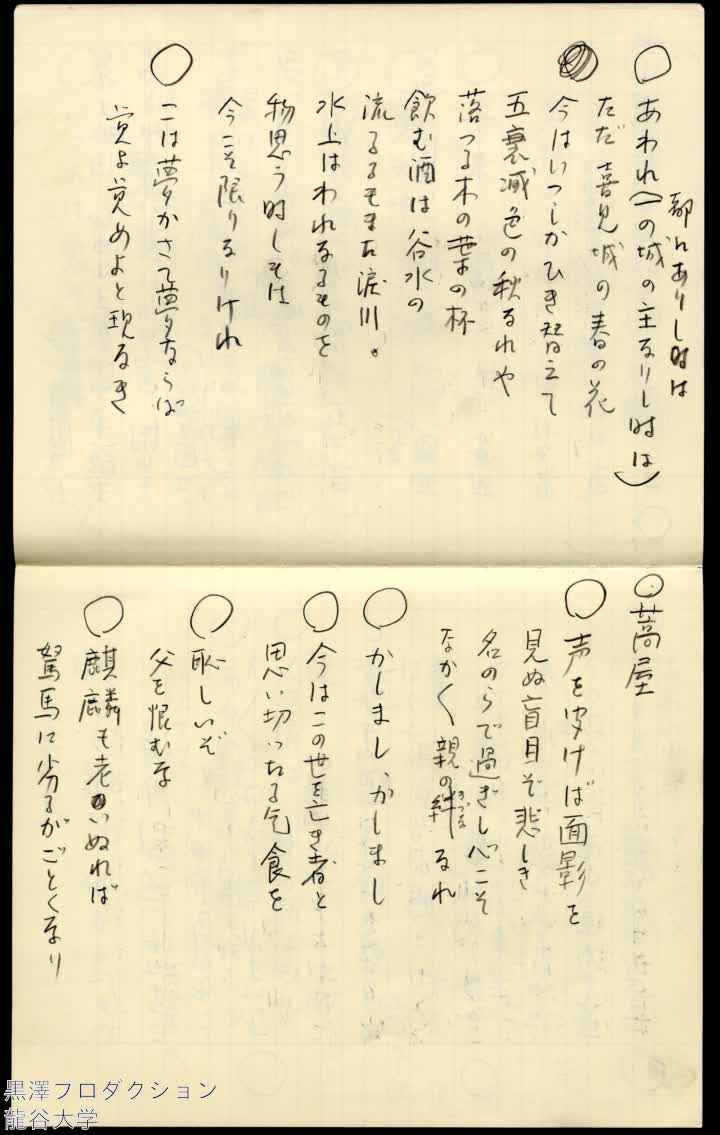 都にありし時は
あわれ(この城の主なりし時は)
ただ喜見城の春の花
今はいつしかひき替えて
五衰滅色の秋なれや
落つる木の葉の杯
飲む酒は谷水の
流るるもまた涙川。
水上はわれなるものを
物思う時しもは
今こそ限りなりけれ
こは夢かさて夢ならば
覚よ覚めよと現なき
藁屋
声をきけば面影を
見ぬ盲目ぞ悲しき
名のらで過ぎし心こそ
なかく親の絆なれ
きづな
かしまし、かしまし
今はこの世を亡き者と
思い切ったる乞食を
恥しいぞ
父を恨むな
麒麟も老いぬれば
駑馬に劣るがごとくなり
黒澤プロダクション
龍谷大学